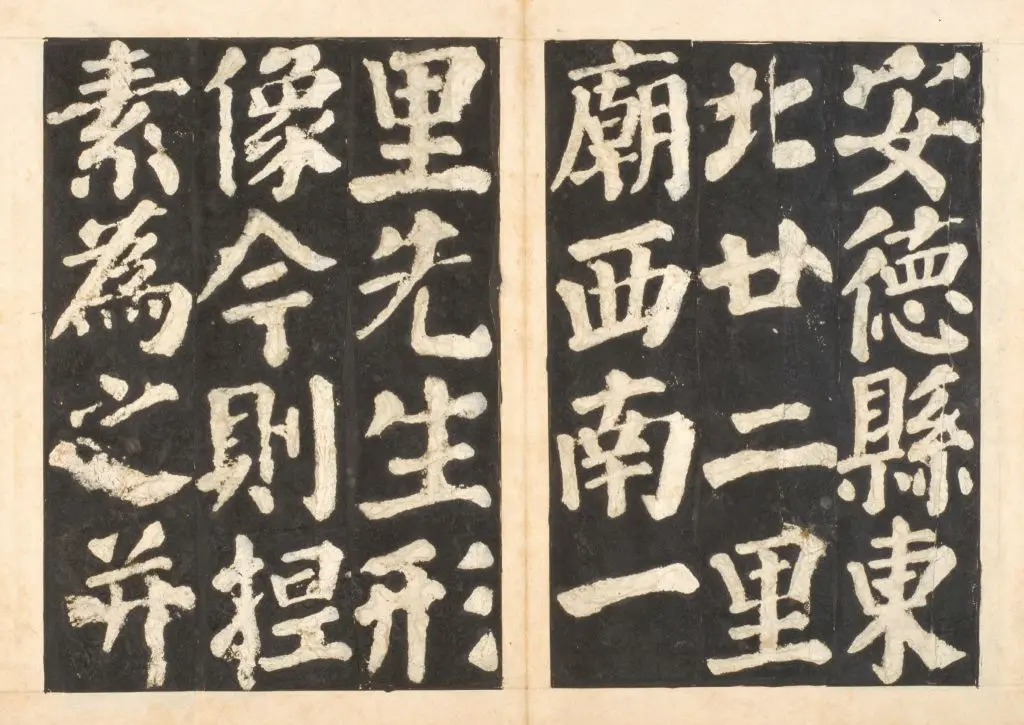 安德縣東
北廿二里
廟西南一
里先生形
像今則捏
素為之并